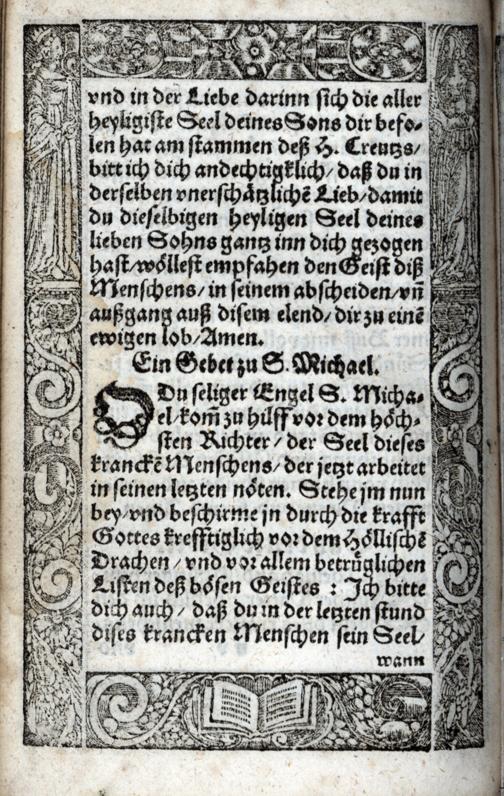 vnd in der Liebe darinn sich die aller
heyligiste Seel deines Sons dir befo-
len hat am stammen deß H. Creutzs/
bitt ich dich andechtigklich/ daß du in
derselben vnerschätzlichē Lieb/ damit
du dieselbigen heyligen Seel deines
lieben Sohns gantz inn dich gezogen
hast/ wöllest empfahen den Geist diß
Menschens/ in seinem abscheiden/ vñ
außgang auß disem elend/ dir zu einē
ewigen lob/ Amen.
Ein Gebet zu S. Michael.
O Du seliger Engel S. Micha-
el/ kom̃ zu hilff vor dem höch-
sten Richter/ der Seel dieses
kranckē Menschens/ der jetzt arbeitet
in seinen letzten nöten. Stehe jm nun
bey/ vnd beschirme jn durch die krafft
Gottes krefftiglich vor dem Höllischē
Drachen/ vnd vor allem betrüglichen
Listen deß bösen Geistes : Ich bitte
dich auch/ daß du in der letzten stund
dises krancken Menschen sein Seel/
wann